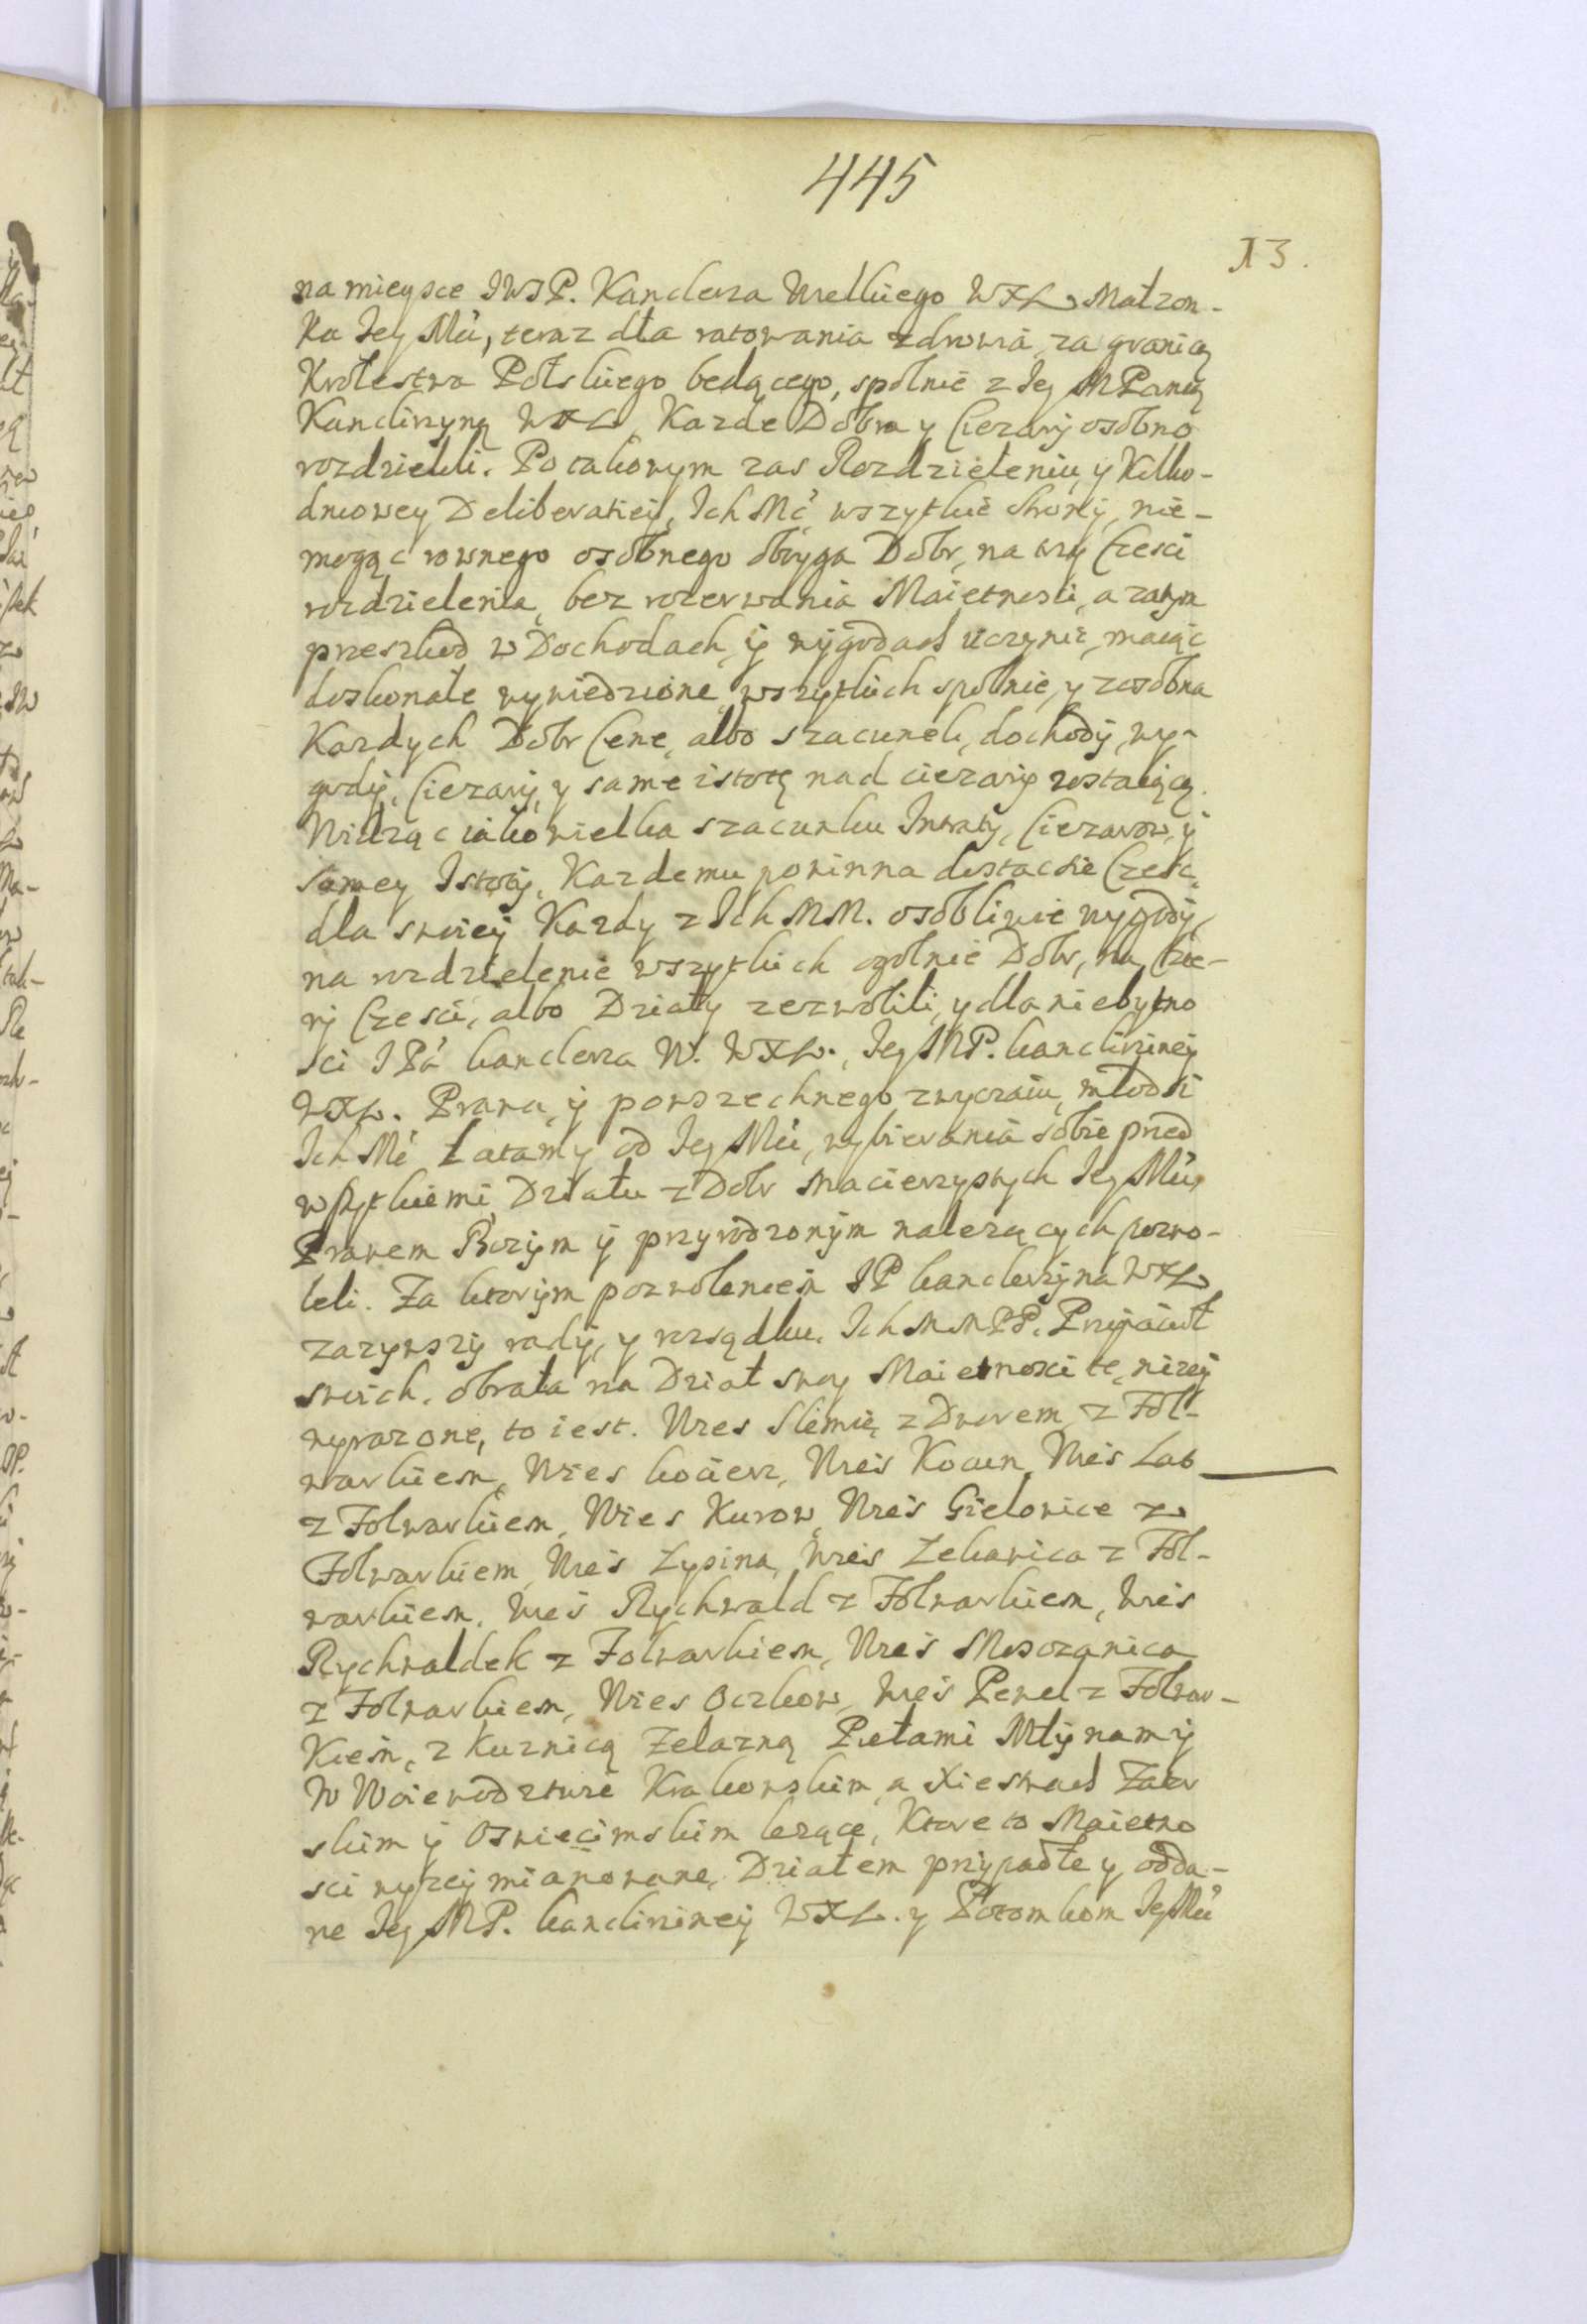 445
13.
na mieysce JWJP. Kanclerza Wielkiego WXL Małzon-
ka Jey Mći, teraz dla ratowania zdrowia za granicą
Krolestwa Polskiego bedącego, spolnie z Jey MPanią
Kanclirzyną WXL, Kazde Dobra y Ciezary osobno
rozdzielili. Po takowym zas Rozdzieleniu y Kilko-
dniowey Deliberatiey, Ich Mć wszytkie strony, nie-
mogąc rownego osobnego Dobr, na trzy Czesci
rozdzielenia, bez rozerwania Maietnosci, a zatym
przeszkod w Dochodach, y wygodach uczynic, maiąc
doskonałe wywiedzione, wszytkich spolnie, y zosobna
Kazdych Dobr Cene, albo szacunek, dochody, wy-
gody, Ciezary, y same istotę nad ciezary zostaiącą.
Widząc iako wielka szacunku Intraty, Ciezarow, y
samey Istoty, Kazdemu powinna dostac sie Czesc,
dla swoiey Kazdy z Ich MM. osobliwie wygody,
na rozdzielenie wszytkich ogolnie Dobr, na Czte-
ry Czesci, albo Działy zezwolili, y dla niebytno
sci JPa kanclerza W. WXL., Jey MP. kanclirziney
WXL. Prawa, y powszechnego zwyczaiu, młodsi
Ich Mć Latamy od Jey Mći, wybierania sobie przed
wszytkiemi, Działu z Dobr Macierzystych Jey Mći,
Prawem Bozym y przyrodzonym nalezących pozwo-
leli. Za ktorym pozwoleniem JP kanclerzyna WXL
zazywszy rady, y rozsądku, Ich MMPP. Przyiacioł
swoich, obrała na Dział swoy Maietnosci te, nizey
wyrazone, to iest. Wies Slemię, z Dworem, z Fol-
warkiem, Wies kocierz, Wieś Kocun, Wieś Las
z Folwarkiem, Wies Kurow, Wieś Gielowice z
Folwarkiem, Wieś Łysina, Wieś Lekawica z Fol-
warkiem, Wieś Rychwald z Folwarkiem, Wieś
Rychwaldek z Folwarkiem, Wieś Mosczanica
z Folwarkiem, Wies Oczkow, Wieś Pewel z Folwar-
kiem, z Kuznicą Zelazną Piełami Młynamy
W Woiewodztwie Krakowskim, a Xiestwach Zator
skim y Oswiecimskim lezące, Ktore to Maietno
sci wyzey mianowane, Działem przypadłe y odda-
ne Jey MP. kanclirziney WXL. y Potomkom Jey Mći